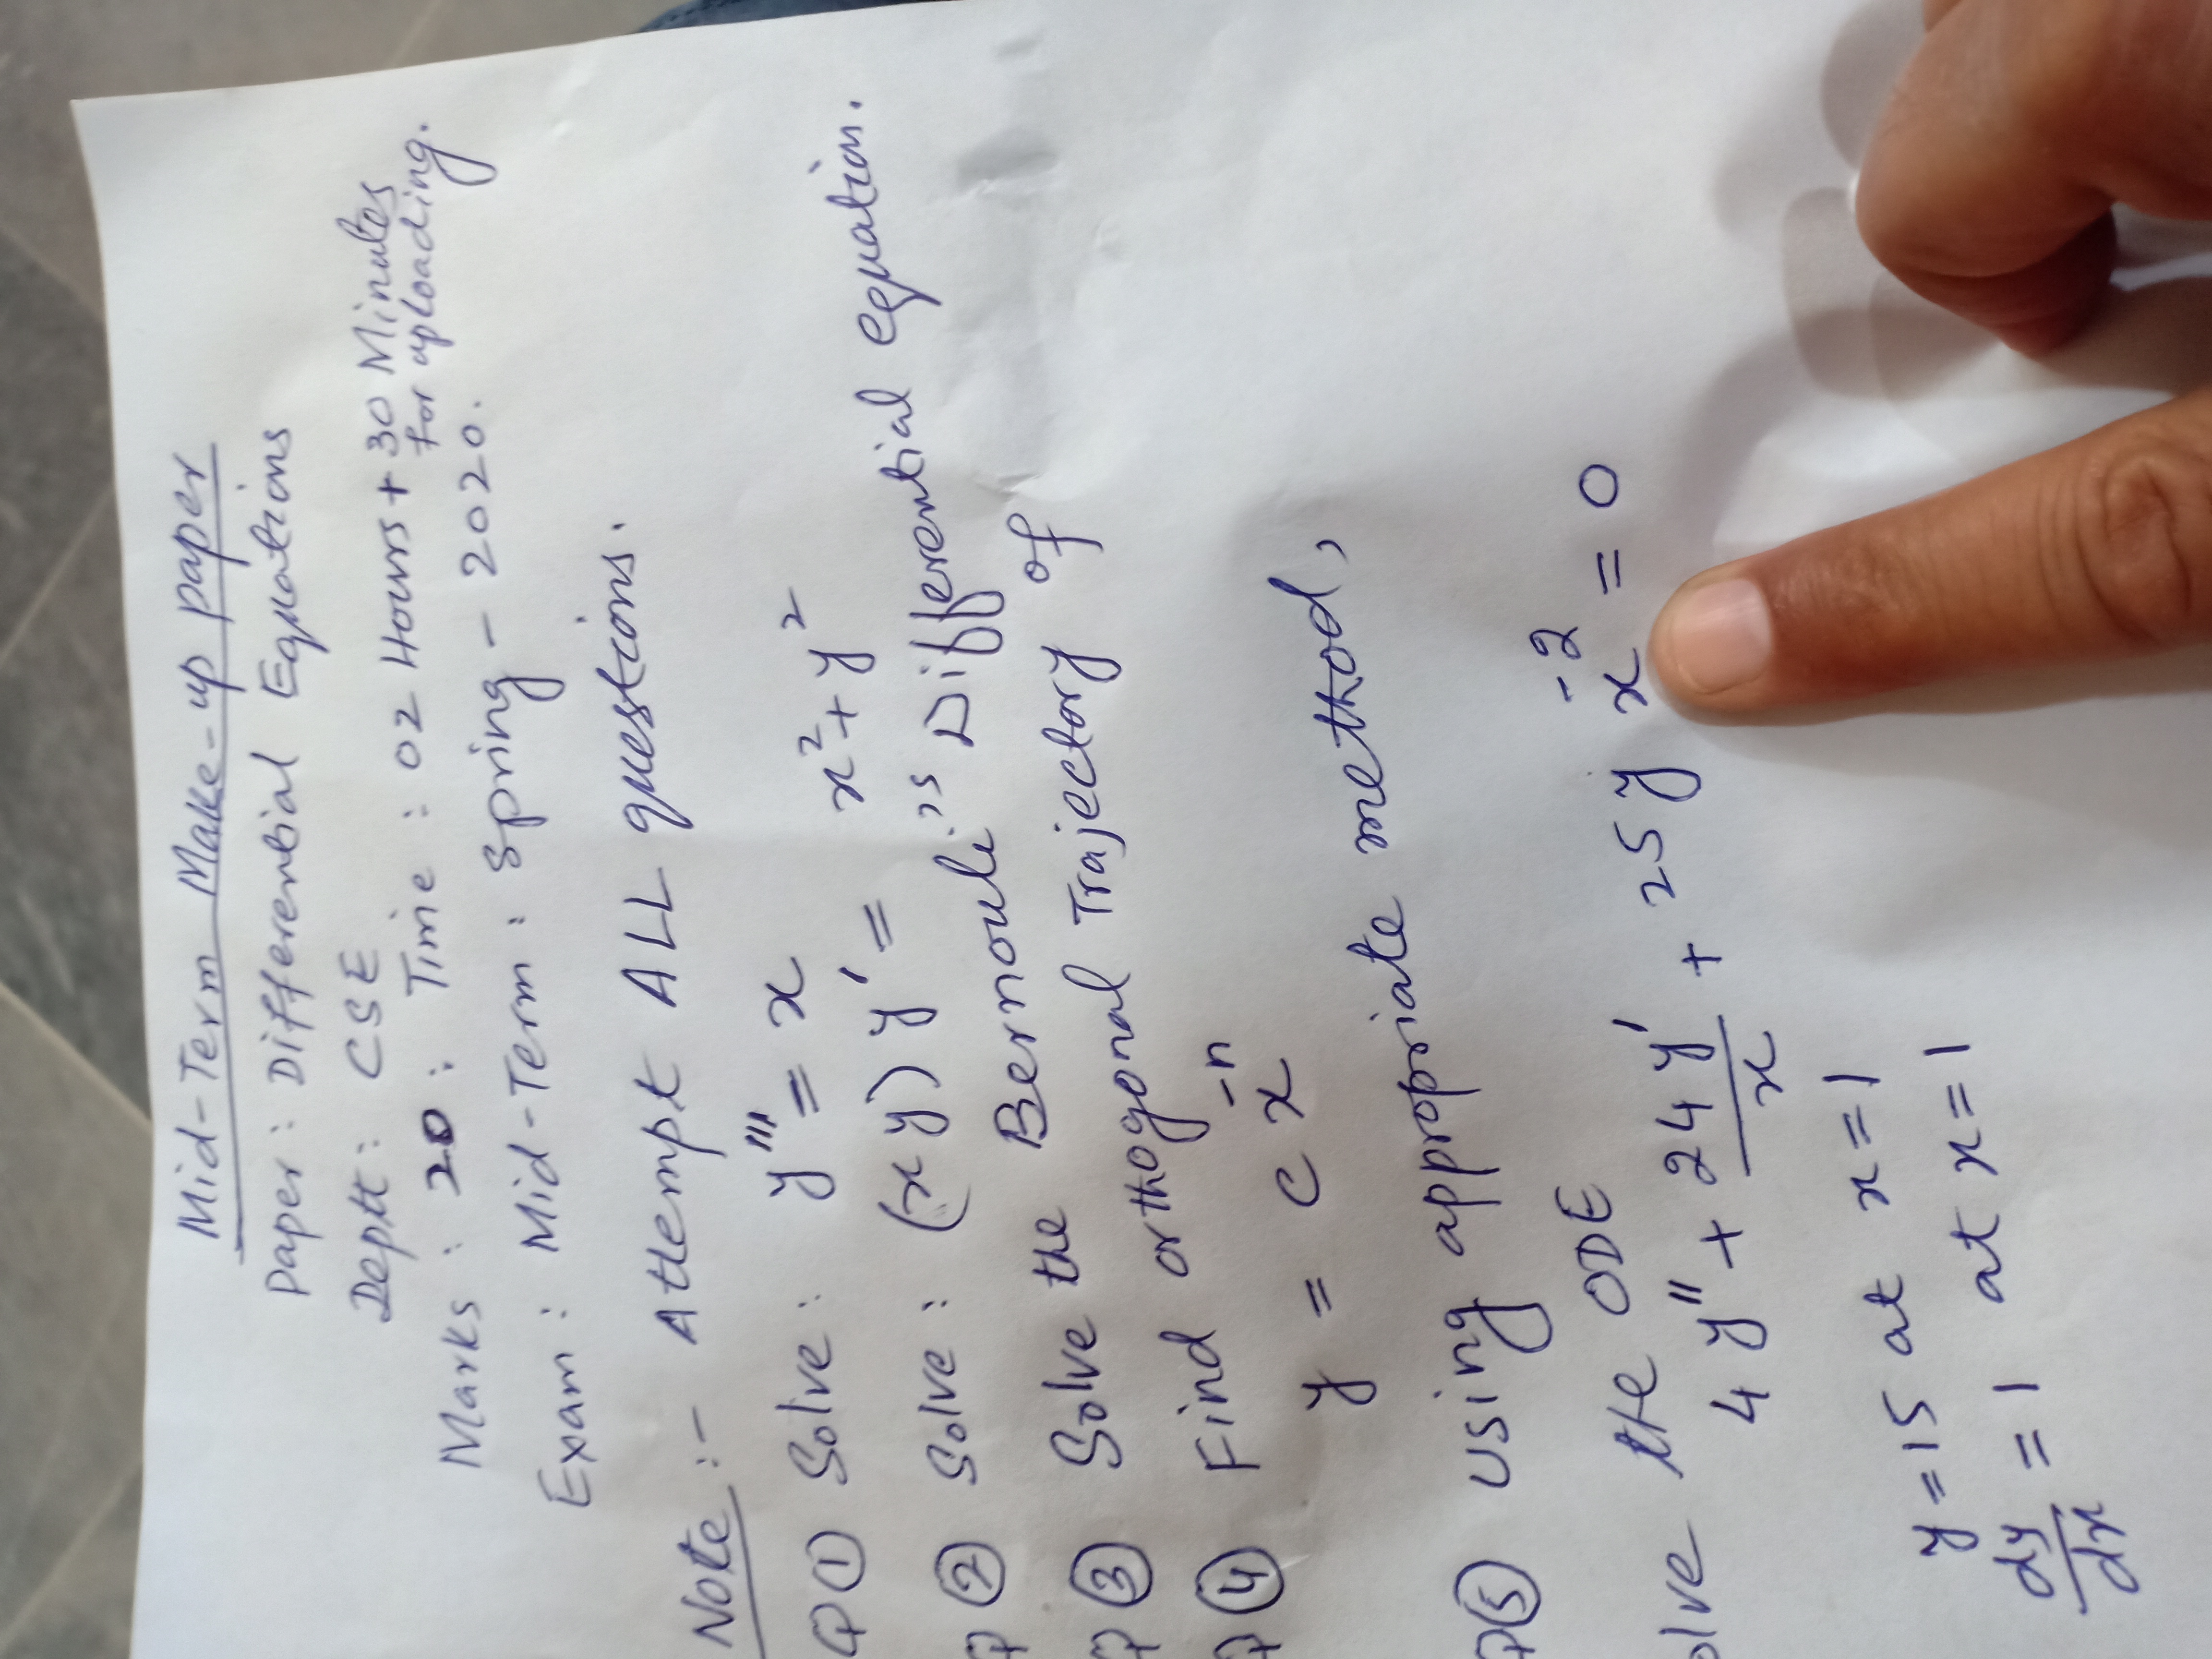 Mid-Term Make-up paper
Paper: Differential Equations
Deptt: CSE
Marks: 20: Time: 02 Hours + 30 Minutes
For uploading.
Exam: Mid-Term: Spring - 2020.
Note:- Attempt ALL questions.
Q① Solve: y''' = x
Q② Solve: (xy) y' = x² + y²
Q③ Solve the Bernouli's Differential equation.
Q④ Find orthogonal Trajectory of
y = c x⁻ⁿ
Q⑤ Using appropriate method,
olve the ODE
4 y'' + 24 y'/x + 25 y x⁻² = 0
y = 15 at x = 1
dy/dx = 1 at x = 1